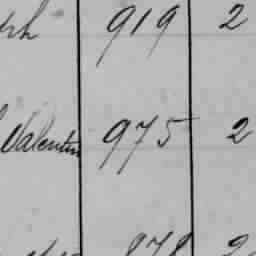 919 2
Valentin 975 2
878 2